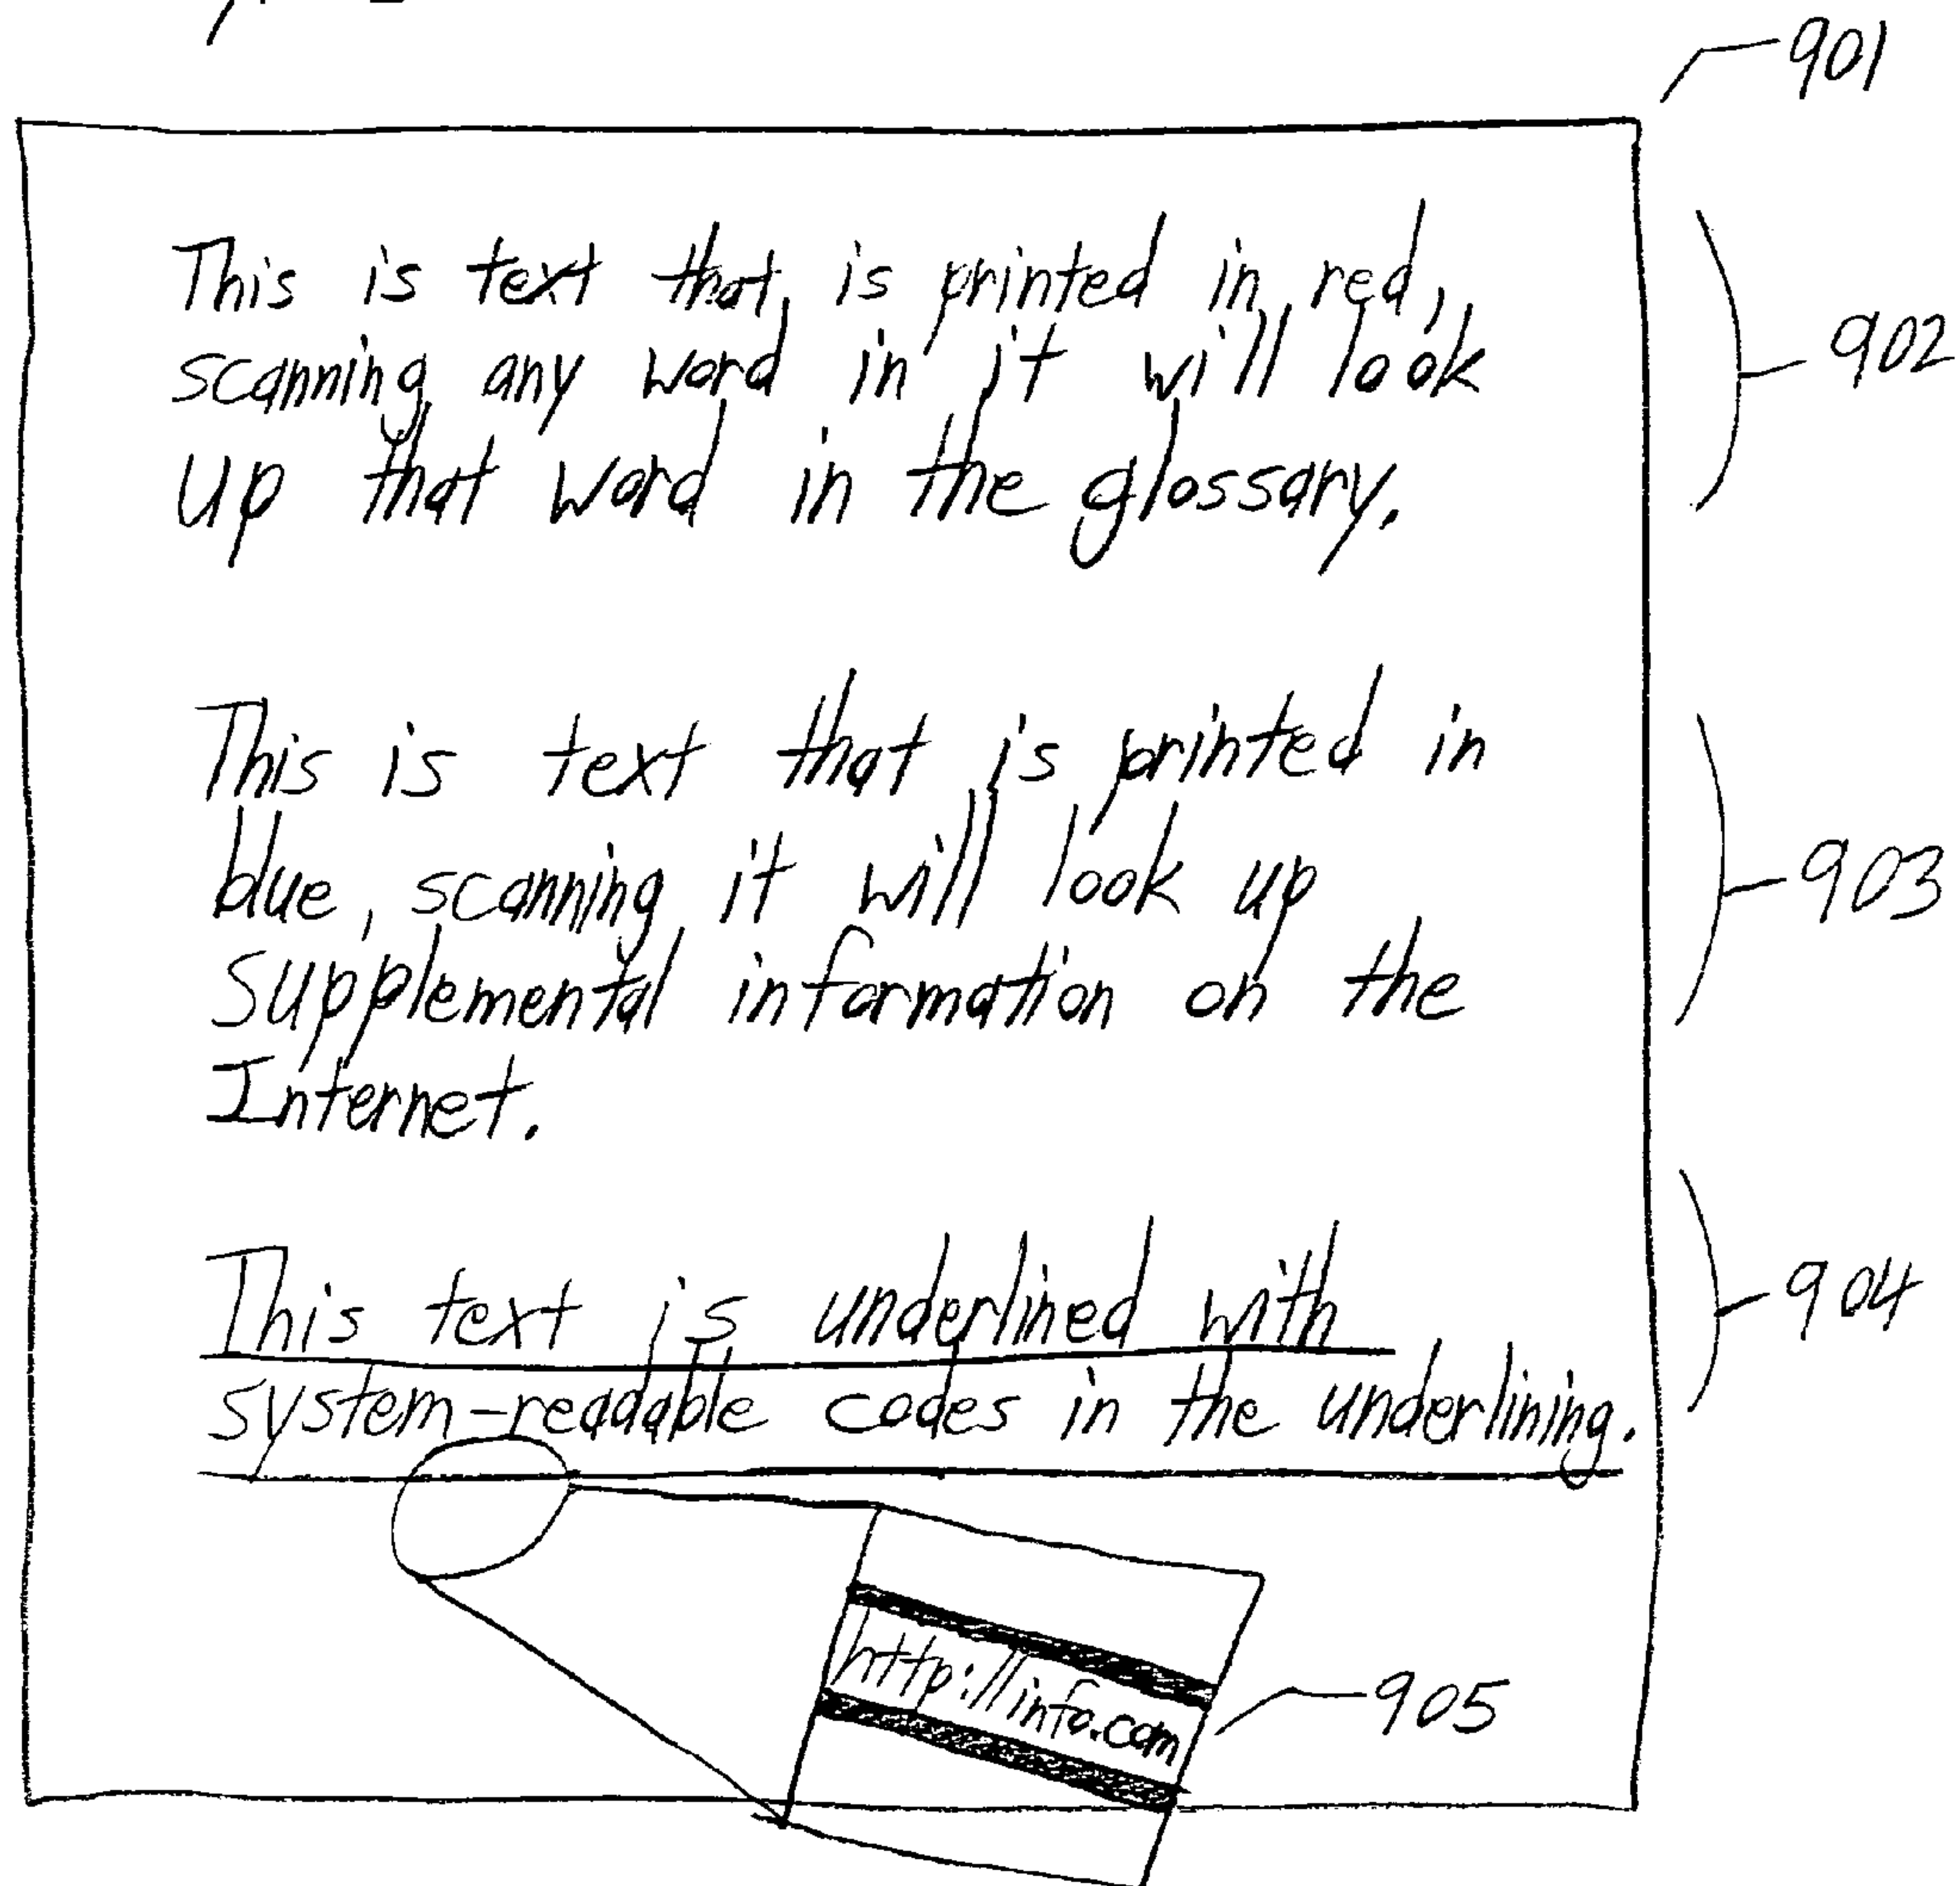 901
This is text that is printed in red,
scanning any word in it will look
up that word in the glossary.
902
This is text that is printed in
blue, scanning it will look up
supplemental information on the
Internet.
903
This text is underlined with
system-readable codes in the underlining.
904
http://info.com
905